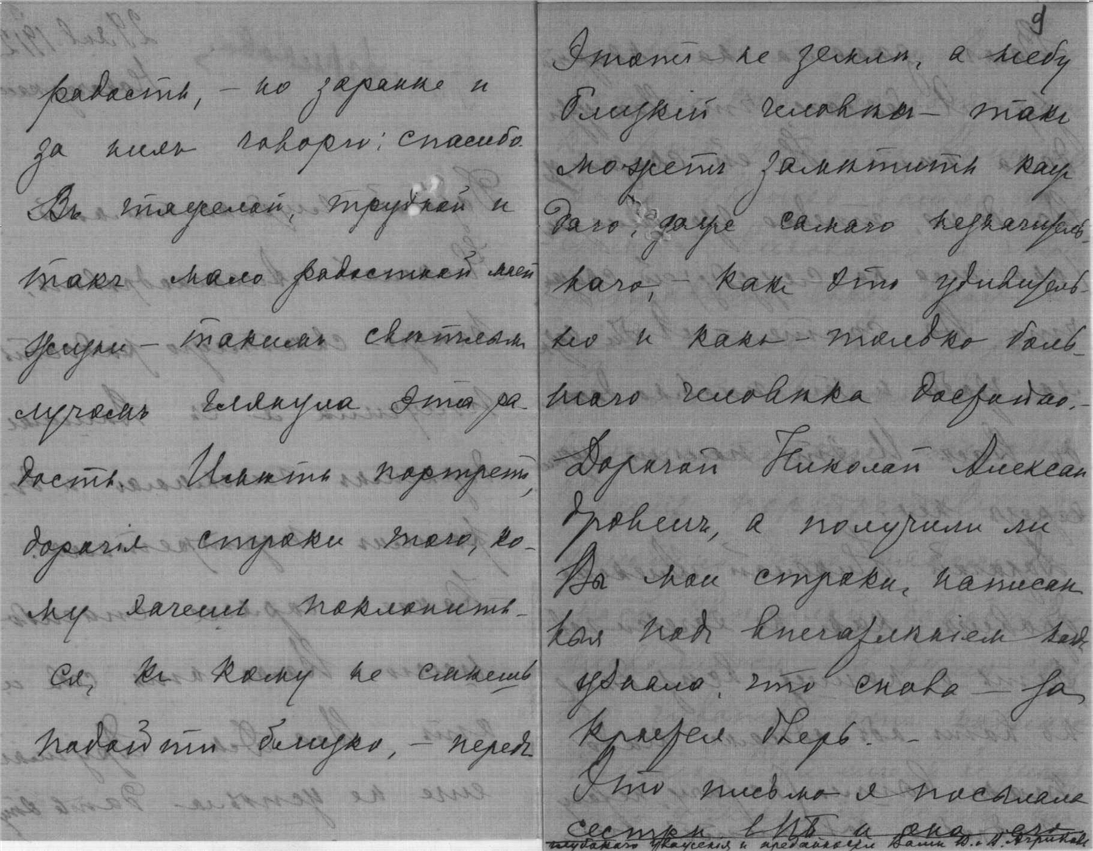 радость, – но заранее и
за нихъ говорю: спасибо.
Въ тяжелой, трудной и
такъ мало радостной моей
жизни – такимъ свѣтлымъ
лучомъ глянула эта ра-
дость. Имѣть портретъ,
дорогія строки того, ко-
му хочешь поклонить-
ся, къ кому не смѣешь
подойти близко, – передъ
9
Этотъ не земли, а небу
близкій человѣкъ – такъ
можетъ замѣтить каж
даго, даже самаго незначитель-
наго, – какъ это удивитель-
но и какъ – только боль-
шого человѣка достойно. –
Дорогой Николай Алексан
дровичъ, а получили ли
Вы мои строки, написан
ныя подъ впечатлѣніемъ
узнала, что снова – за
крыта дверь. –
Это письмо я посылала
сестрѣ въ ПБ и она его
глубокаго уваженія и преданности Вамъ